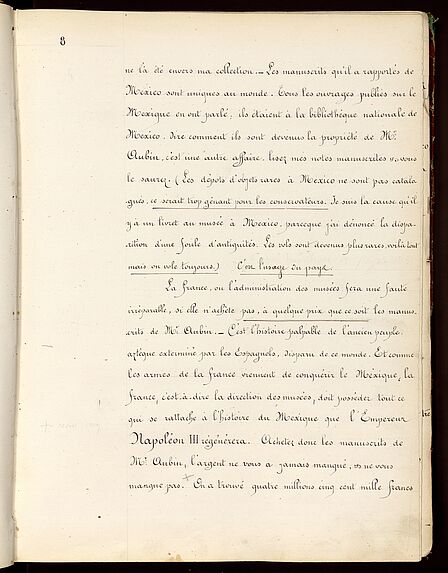 8
ne l'a été envers ma collection. — Les manuscrits qu'il a rapportés de
Mexico sont uniques au monde. Tous les ouvrages publiés sur le
Mexique en ont parlé, ils étaient à la bibliothèque nationale de
Mexico. Dire comment ils sont devenus la propriété de Mr.
Aubin, c'est une autre affaire, lisez mes notes manuscrites, vous
le saurez. (Les dépôts d'objets rares à Mexico ne sont pas catalo-
gués, ce serait trop gênant pour les conservateurs. Je suis la cause qu'il
y a un livret au musée à Mexico, parceque j'ai dénoncé la dispa-
rition d'une foule d'antiquités. Les vols sont devenus plus rares, voilà tout
mais on vole toujours.) C'est l'usage du pays.
La France, ou l'administration des musées fera une faute
irréparable, si elle n'achète pas, à quelque prix que ce soit les manus-
crits de Mr. Aubin. — C'est l'histoire palpable de l'ancien peuple
aztèque exterminé par les Espagnols, disparu de ce monde. Et comme
les armes de la France viennent de conquérir le Méxique, la
France, c'est-à-dire la direction des musées, doit posséder tout ce
qui se rattache à l'histoire du Mexique que l'Empereur
Napoléon III régénérera. Achetez donc les manuscrits de
Mr. Aubin, l'argent ne vous a jamais manqué, et ne vous
manque pas. + On a trouvé quatre millions cinq cent mille francs